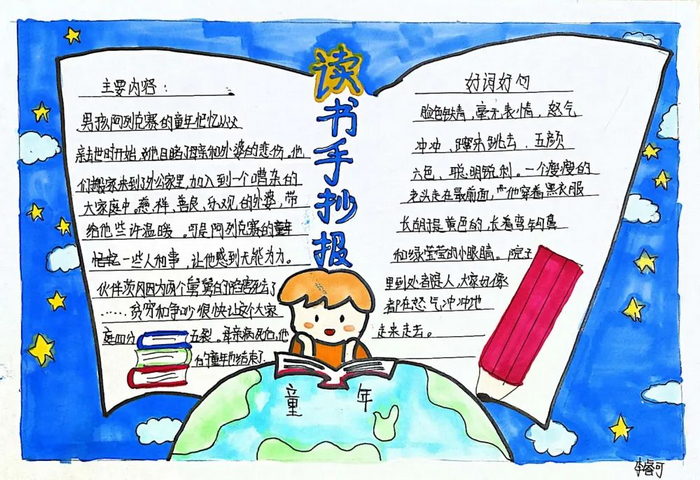 读书手抄报
主要内容：
男孩阿列克赛的童年记忆从父
亲去世时开始，到他目睹了母亲和外婆的悲伤，他
们搬家来到了外公家里，加入到一个嘈杂的
大家庭中。慈祥、善良、乐观的外婆，带
给他些许温暖。可是阿列克赛的童年
一些人和事，让他感到无能为力。
伙伴茨冈因为两个舅舅的
……贫穷和争吵很快让这个大家
四分五裂。母亲病死后，他
的童年也结束了
好词好句
脸色铁青，毫无表情，怒气
冲冲、蹿来跳去、五颜
六色、聪明锐利。一个瘦瘦的
老头走在最前面，他穿着黑衣服
长胡子是黄色的，长着弯钩鼻
和绿莹莹的小眼睛。院子
里到处都是人，大家好像
都在怒气冲冲地
走来走去。
童年
李睿可